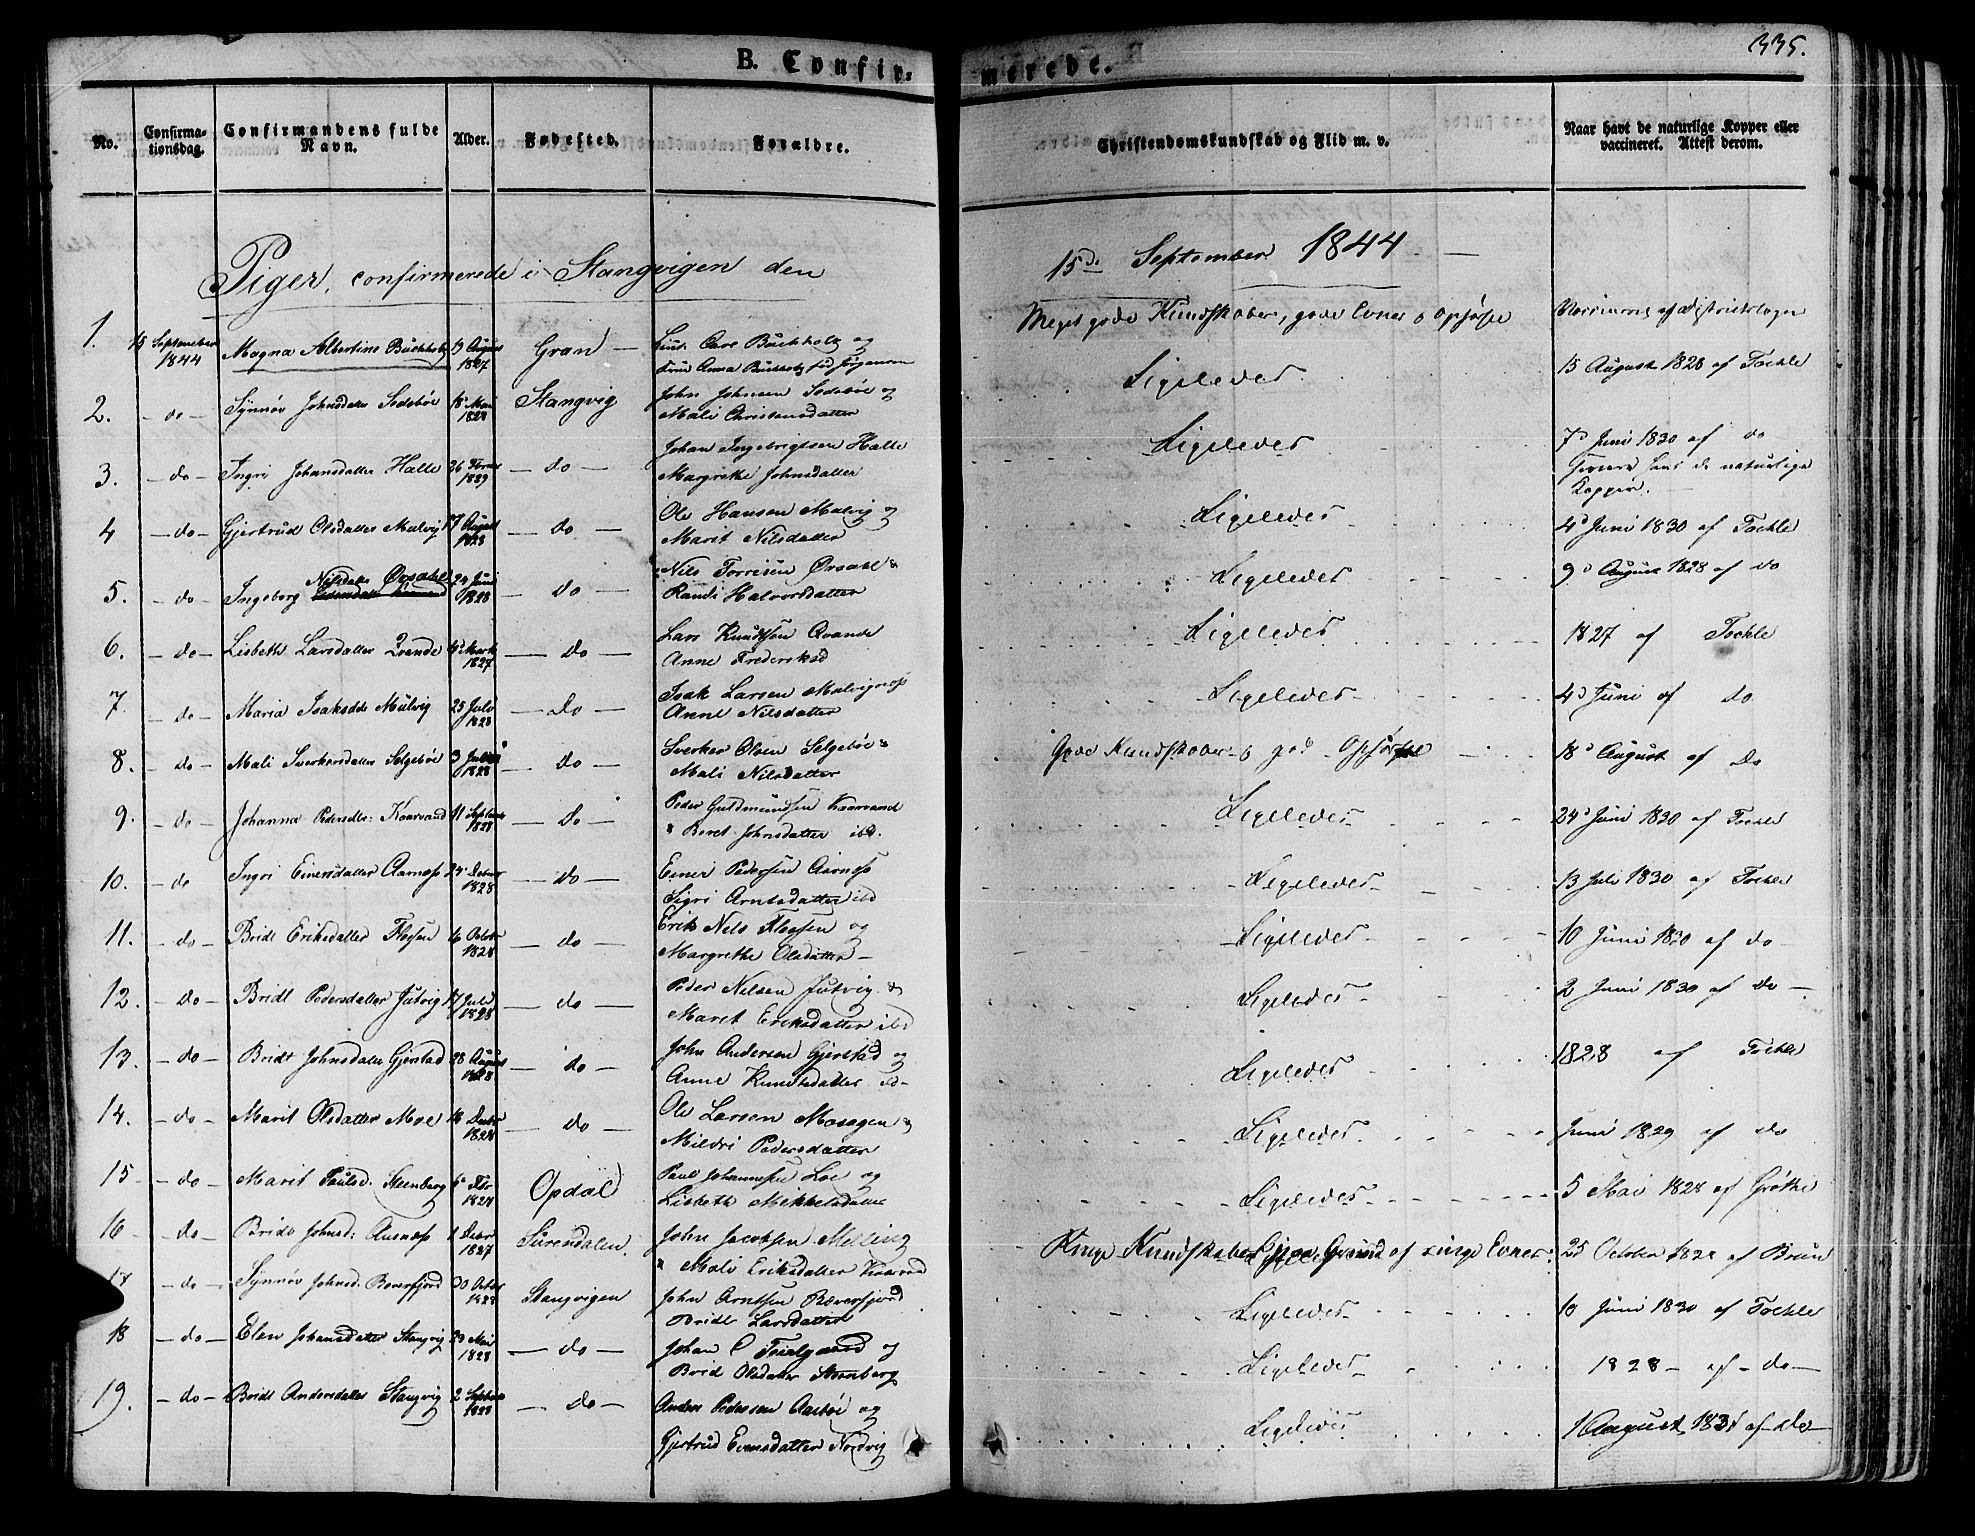 335.
B. Confir-
merede.
No.
Confirma-
tionsdag.
Confirmandens fulde
Navn.
Alder.
Fødested.
Forældre.
Christendomskundskab og Flid m. v.
Naar havt de naturlige Kopper eller
vaccineret. Attest derom.
Piger, confirmerede i Stangvigen den
15de September 1844 -
1. 15 September 1844 Magna Albertine Buchholz 9 August 1827 Gran - Lieut. Carl Buchholz og
Frue Anna Buchholz fød Jørgensen
Meget gode Kundskaber, gode Evner og Opførsel
15 August 1828 af Tochle
2. - do - Synnøv Johnsdatter Sedebøe 18 Mai 1828 Stangvig John Johnsen Sedebøe og
Mali Christensdatter
Ligeledes
7d Juni 1830 af do
3. - do - Ingri Johansdatter Halle 26 1829 - do - Johan Ingebrigtsen Halle
Margrethe Johnsdatter
Ligeledes
havt de naturlige
Kopper. -
4 - do - Gjertrud Olsdatter Mulvig 17 August 1828 - do - Ole Hansen Mulvig og
Marit Nilsdatter
Ligeledes
4d Juni 1830 af Tochle
5. - do - Ingeborg Nilsdatter Ørsahl 24 Juni 1828 - do - Nils Torrisen Ørsahl &
Randi Halvorsdatter
Ligeledes
9d August 1828 af do
6. - do - Lisbeth Larsdatter Qvande 4 Marts 1827 - do - Lars Knudtsen Qvande
Anne Frederiksd
Ligeledes
1827 af Tochle
7 - do - Maria Isaksdtr Mulvig 25 Juli 1828 - do - Isak Larsen Mulvignæss
Anne Nilsdatter
Ligeledes
4d Juni af do
8. - do - Mali Sverkersdatter Selgebøe 3 1828 - do - Sverker Olsen Selgebøe &
Mali Nilsdatter
Gode Kundskaber og god Opførsel
18d August af do
9. - do - Johanna Pedersdtr: Kaarvand 11 September 1828 - do - Peder Guldmundsen Kaarvand
& Beret Johnsdatter ibd.
Ligeledes
24d Juni 1830 af Tochle
10. - do Ingri Einersdatter Aarnæss 24 Debr 1828 - do - Einer Pedersen Aarnæss
Sigri Arntsdatter ibd
Ligeledes
13 Juli 1830 af Tochle
11. - do - Bridt Eriksdatter Flessen 16 Octobr 1828 - do - Erik Nils Flessen og
Margrethe Olsdatter -
Ligeledes
10 Juni 1830 af do -
12. - do - Bridt Pedersdatter Jutvig 17 Juli 1828 - do - Peder Nilsen Jutvig &
Marit Eriksdatter ibd
Ligeledes
2 Juni 1830 af do -
13. - do - Bridt Johnsdatter Gjerstad 28 August 1828 - do - John Andersen Gjerstad og
Anne Knudtsdatter ibd -
Ligeledes
1828 af Tochle
14. - do - Marit Olsdatter Moe 16 Decbr 1828 - do - Ole Larsen Moeagen &
Mildri Pedersdatter
Ligeledes
Juni 1829 af do
15 - do - Marit Paulsd. Steenberg 6 Febr 1828 Opdal Paul Johannesen Loe og
Lisbeth Mikkelsdatter
Ligeledes
5 Mai 1828 af Grøthe
16 - do - Bridt Johnsd: Aasnæss 1 Decbr 1827 Surendalen. John Jacobsen Melling
& Mali Eriksdatter Kaarvad
Ringe Kundskaber paa Grund af ringe Evner.
25 October 1828 af Bruun
17 - do - Synnøv Johnsd. Bæverfjord 30 October 1828 Stangvigen John Arntsen Bæverfjord
Bridt Larsdatter
Ligeledes
10 Juni 1830 af Tochle
18 - do - Elen Johansdatter Stangvig 29 Mai 1828 - do - Johan C og
Brid Olsdatter Steenberg
Ligeledes
1828 - af - do -
19. - do - Bridt Andersdatter Stangvig 2 Septbr 1828 - do - Anders Pedersen Aasbøe og
Gjertrud Evensdatter Nordvig
Ligeledes
1 August 1831 af - do -